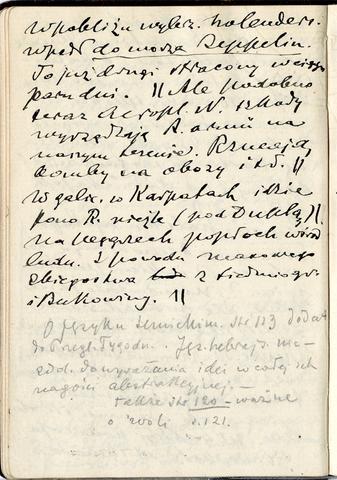 w pobliżu wybrz. holenders.
wpadł do morza Zeppelin.
To już drugi stracony w ciągu
paru dni. || Ale podobno
teraz aeropl. N. szkody
wyrządzają R. armii na
naszym terenie. Rzucają
bomby na obozy i t.d. ||
W galic. w Karpatach idzie
pono R. nieźle (pod Duklą) ||.
na Węgrzech popłoch wśród
ludn. z powodu masowego
zbiegostwa z Siedmiogr.
i Bukowiny. ||
O języku semickim. str 113 dodat.
do Przegl. Tygodn. Jęz. hebrajs.
do wyrażania idei w całej ich
nagości abstrakcyjnej. –
także str 120 – ważne
o woli s. 121.